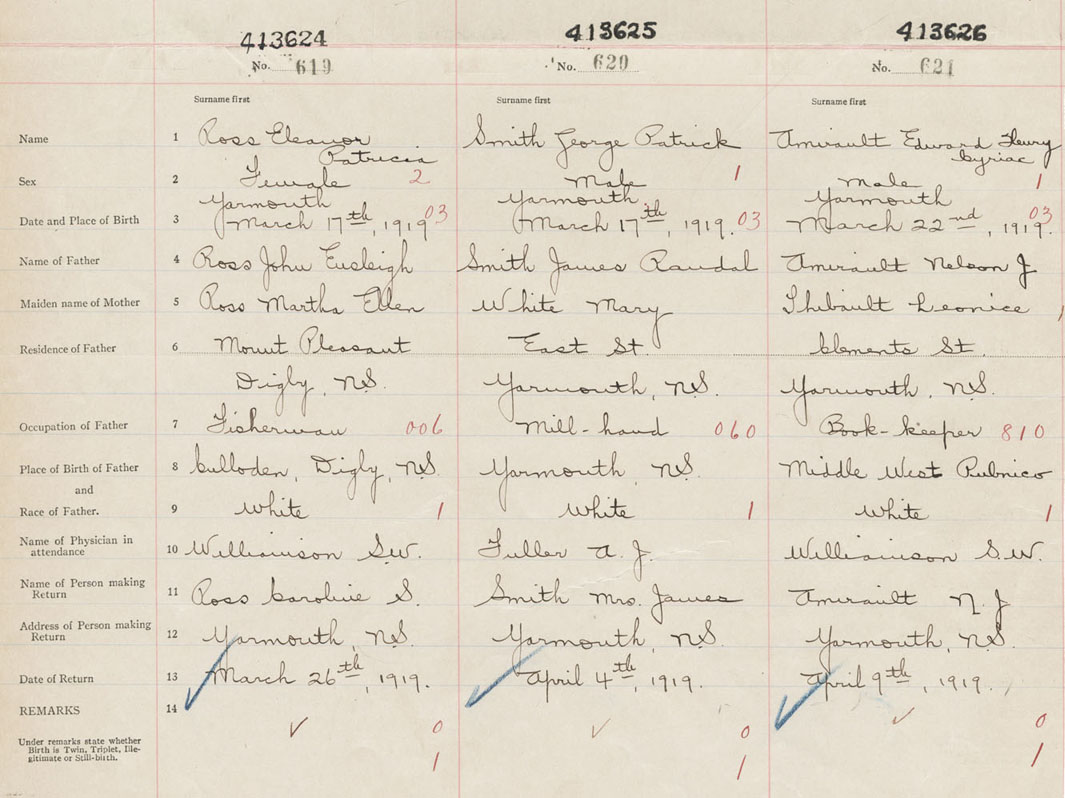 413624 413625 413626
No. 619 No. 620 No. 621
Surname first Surname first Surname first
Name 1 Ross Eleanor Smith George Patrick Amirault Edward Henry
Patricia Cyriac
Sex 2 Female 2 Male 1 Male 1
Yarmouth Yarmouth, Yarmouth
Date and Place of Birth 3 March 17th, 1919 03 March 17th, 1919. 03 March 22nd, 1919. 03
Name of Father 4 Ross John Smith James Randal Amirault Nelson J
Maiden name of Mother 5 Ross Martha Ellen White Mary Thibault Leonice
Residence of Father 6 Mount Pleasant East St. Clements St.
Digby, NS. Yarmouth, NS. Yarmouth, NS.
Occupation of Father 7 Fisherman 006 Mill-hand 060 Book-keeper 810
Place of Birth of Father 8 Culloden, Digby, NS. Yarmouth, NS. Middle West Pubnico
and
Race of Father. 9 White 1 White 1 White 1
Name of Physician in
attendance 10 Williamson S.W. Fuller A. J. Williamson S.W.
Name of Person making
Return 11 Ross Caroline S. Smith Mrs. James Amirault N. J
Address of Person making
Return 12 Yarmouth, NS. Yarmouth, NS Yarmouth, NS.
Date of Return 13 March 26th, 1919. April 4th, 1919. April 9th, 1919.
REMARKS 14
0 0 0
Under remarks state whether
Birth is Twin, Triplet, Ille-
gitimate or Still-birth.
1 1 1